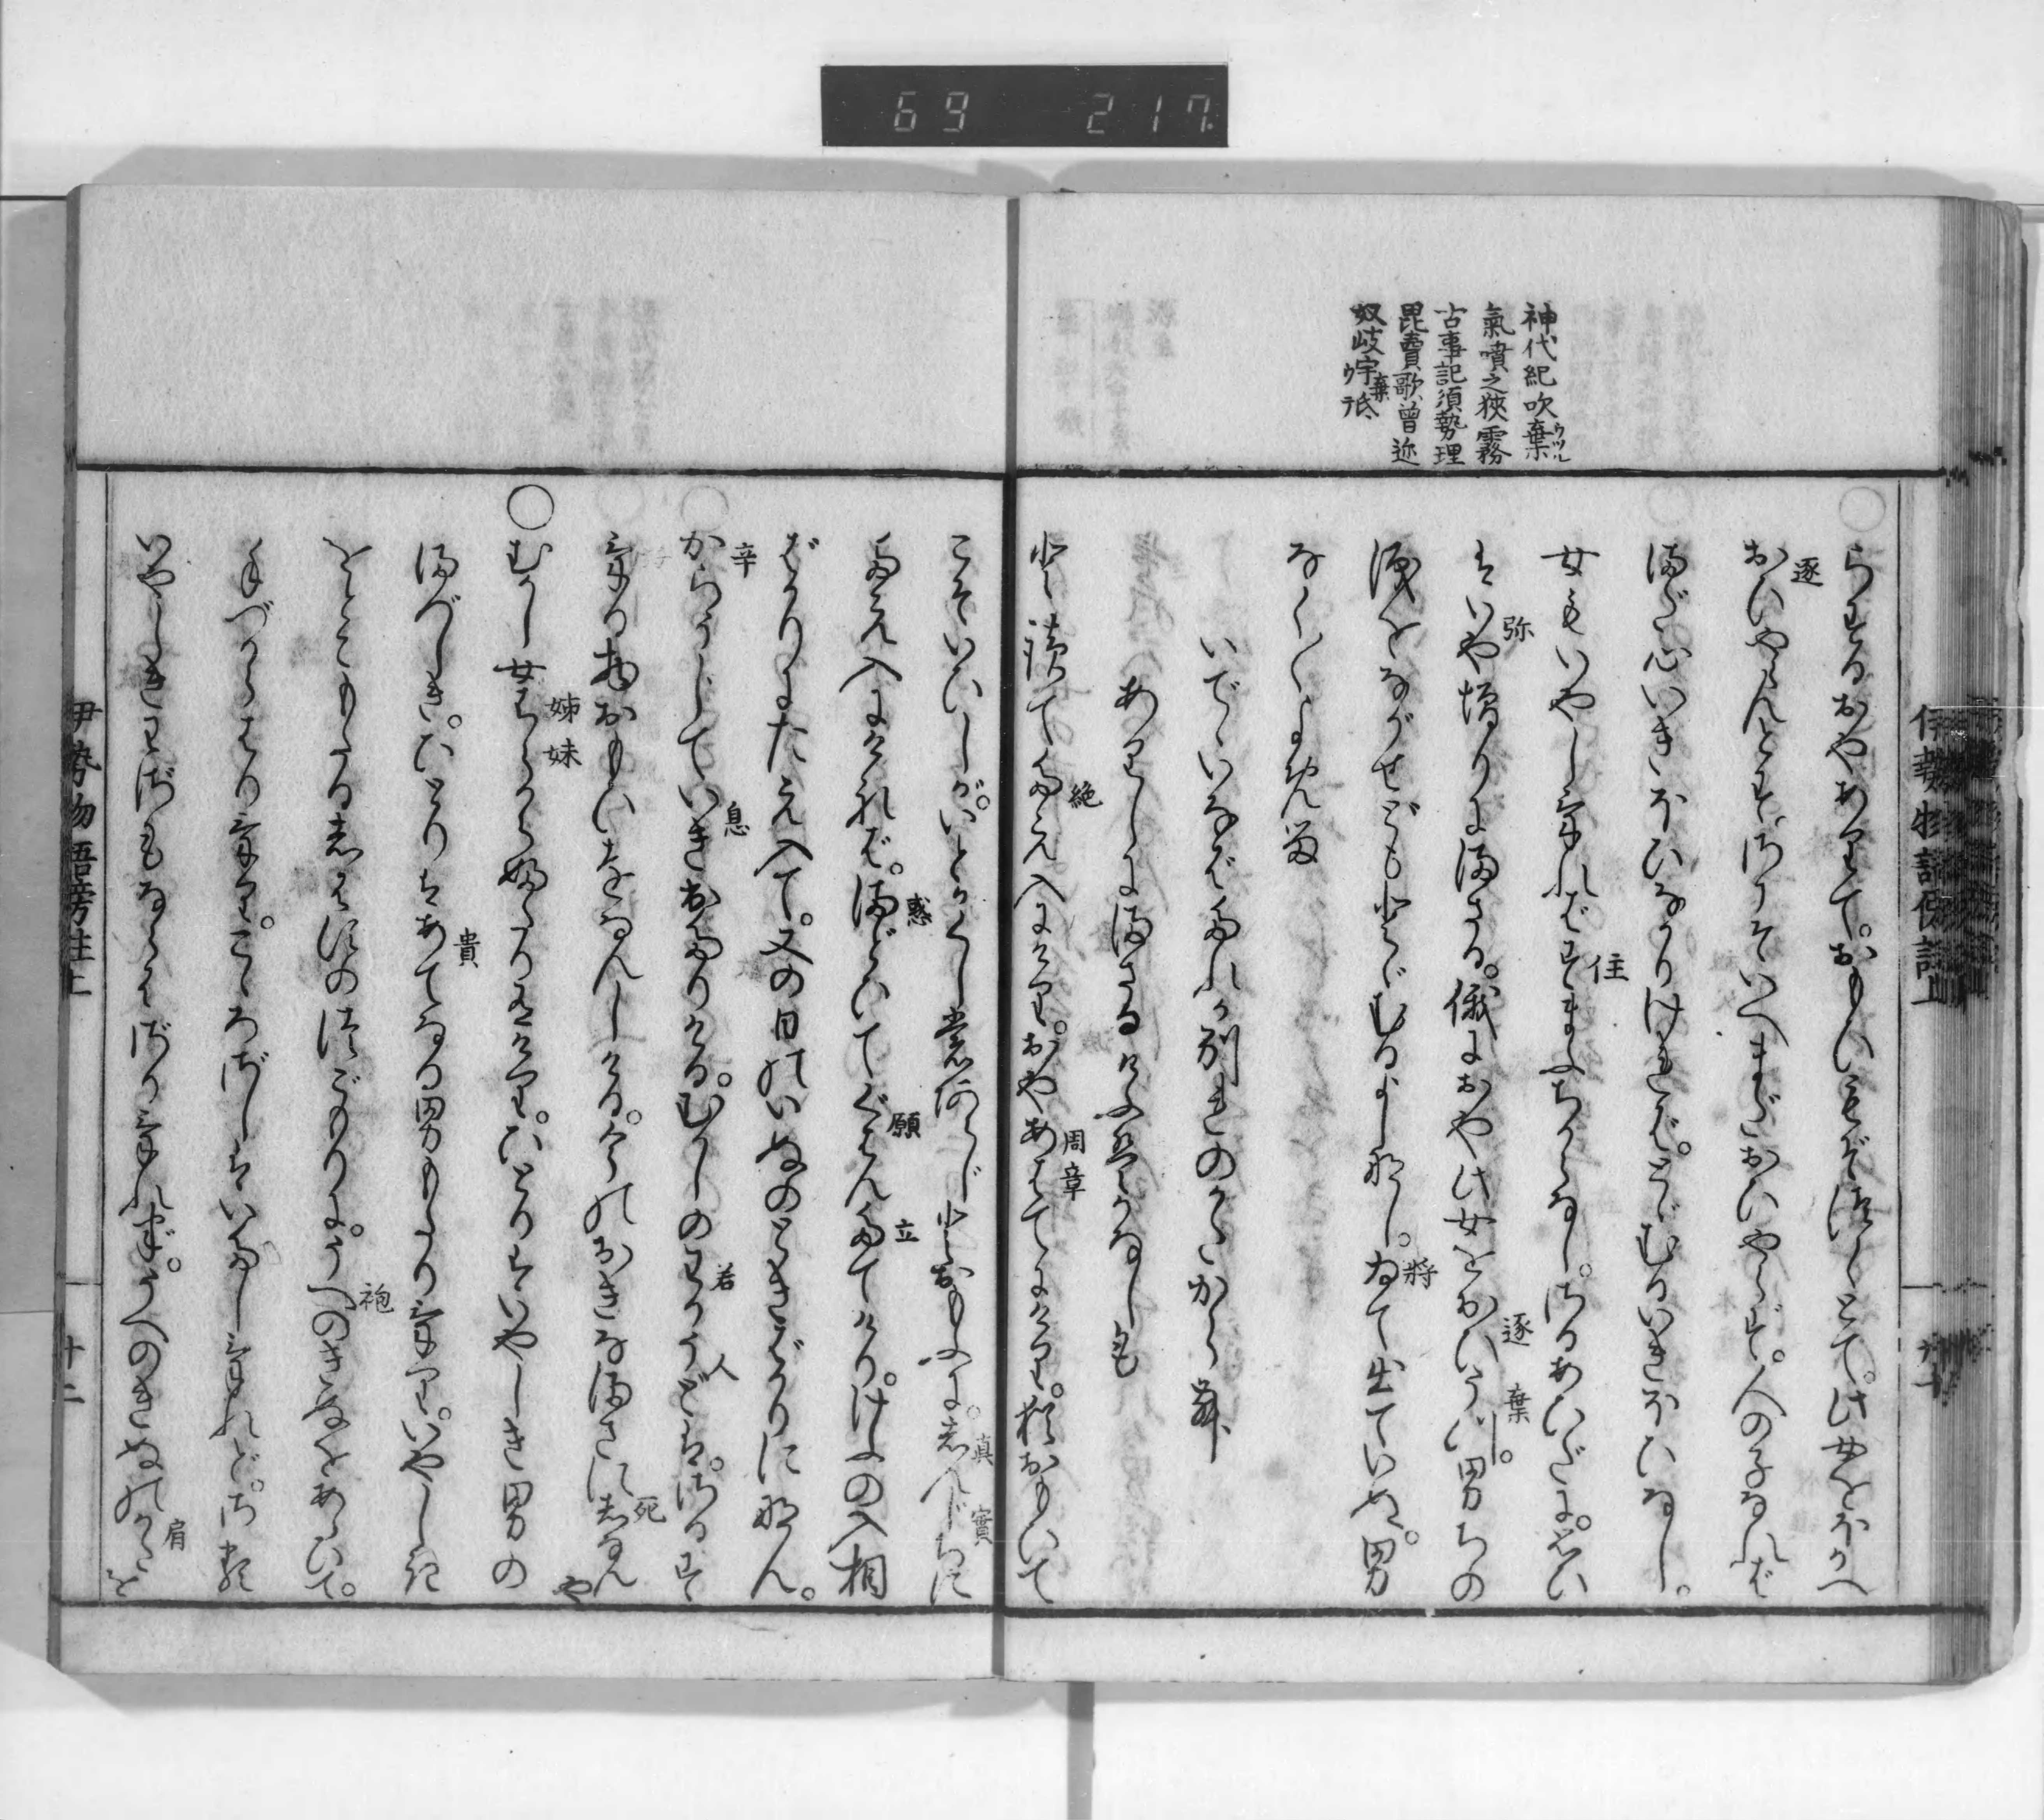 神代紀吹棄ウツル
氣噴之狹霧
古事記須勢理
毘賣歌曾迩
奴岐宇棄ウテ弖
らするおやありて。おもひもぞつくとて。此女をほかへ
逐
おひやらんとす。さこそいへまだおひやらず。人の子なれば
まだ心いきほひなかりければ。とゞむるいきほひなし。
住
女もいやしければすまふちからなし。さるあひだに。思ひ
弥 逐 棄
はいや増りにまさる。俄におや此女をおひうつ。男ちの
將
涙をながせどもとゞむるよしなし。ゐて出ていぬ。男
なく〳〵よめる
いでゝいなばたれか別れのかたからん
ありしにまさるけふはかなしも
絶 周章
と読てたえ入にけり。おやあはてにけり。猶おもひて
眞實
こそいひしが。いとかくしもあらじとおもふに。しんじちに
惑 願 立
たえ入にければ。まどひてぐはんたてけり。けふの入相
ばかりにたえ入て。又の日のいぬのときばかりになん。
辛 息 若人
からうじていきおたりける。むかしのわかうどは。さるす
死
ける物おもひをなんしける。今のおきなまさにしなんや
姊妹
○むかし女はらからふたり有けり。ひとりはいやしき男の
貴
まづしき。ひとりはあてなる男もたりけり。いやしき
袍
をとこもたるしはすのつごもりに。うへのきぬをあらひて。
手づからはりけり。こゝろざしはいたしけれど。さる
肩
いやしきわざもならはざりければ。うへのきぬのかたを
伊勢物語傍註上 十二